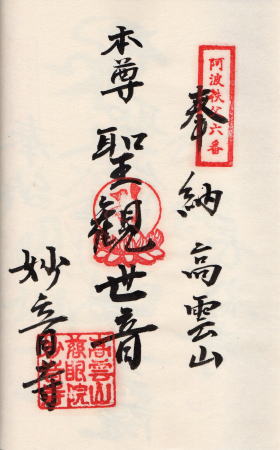 阿波秩父六番
奉納 高雲山
本尊 聖観世音
妙音寺
高雲山
慈眼院
妙音寺